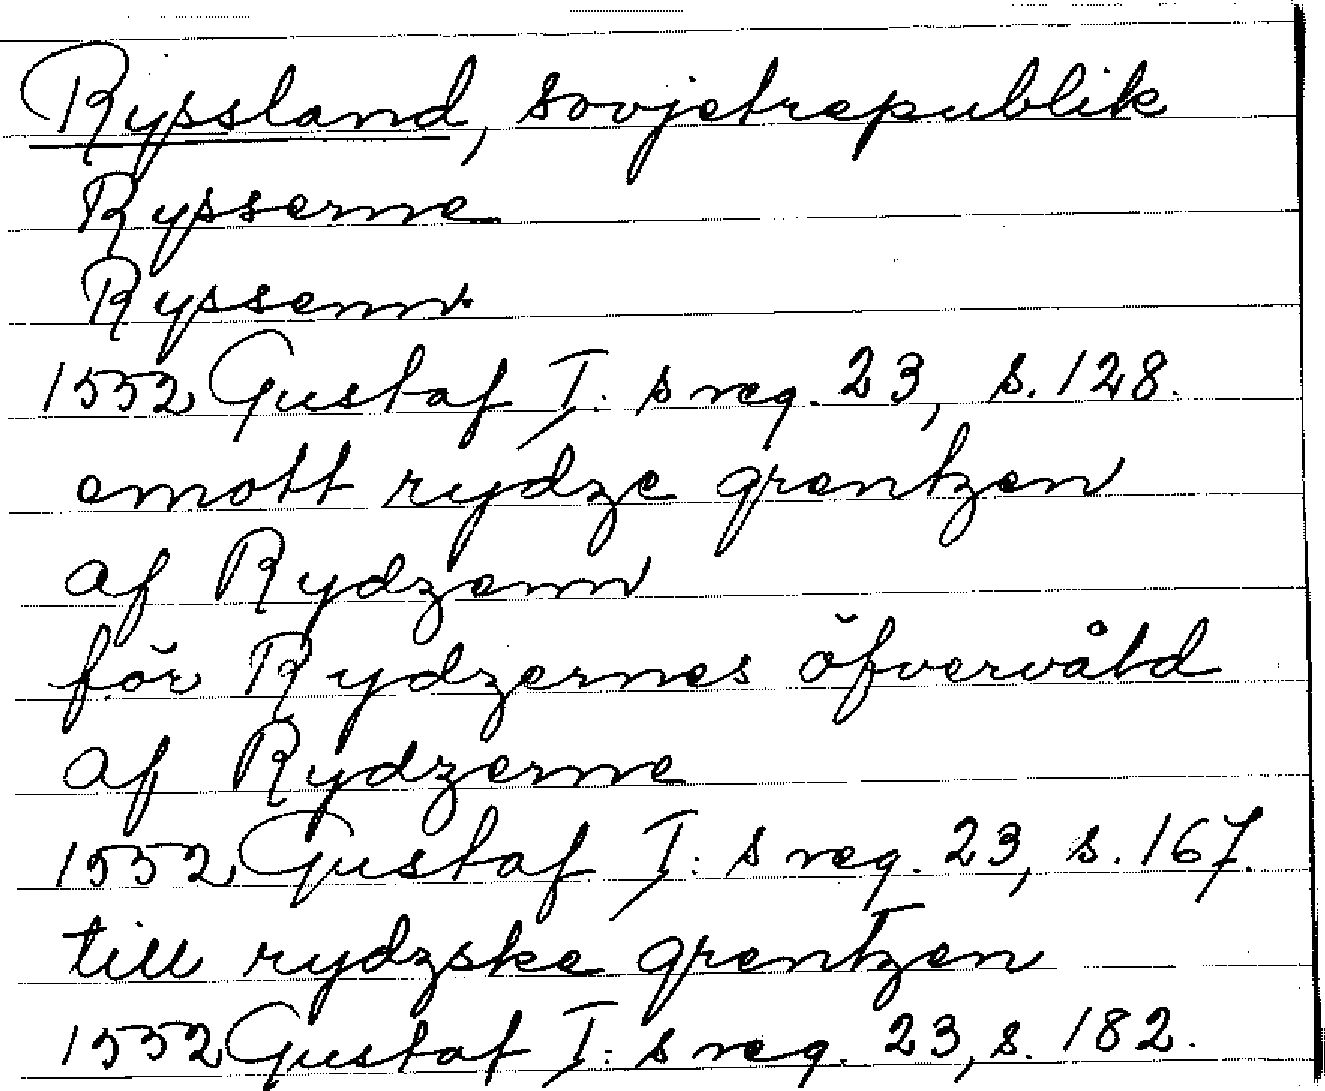 Ryssland, sovjetrepublik
Rysserne
Ryssenn
1552 Gustaf I: s reg. 23, s. 128.
emott rydze grentzen
af Rydzenn
för Rydzernes öfvervåld
af Rydzerne
1552 Gustaf I: s reg. 23, s. 167.
till rydzske grentzen
1552 Gustaf I: s reg. 23, s. 182.